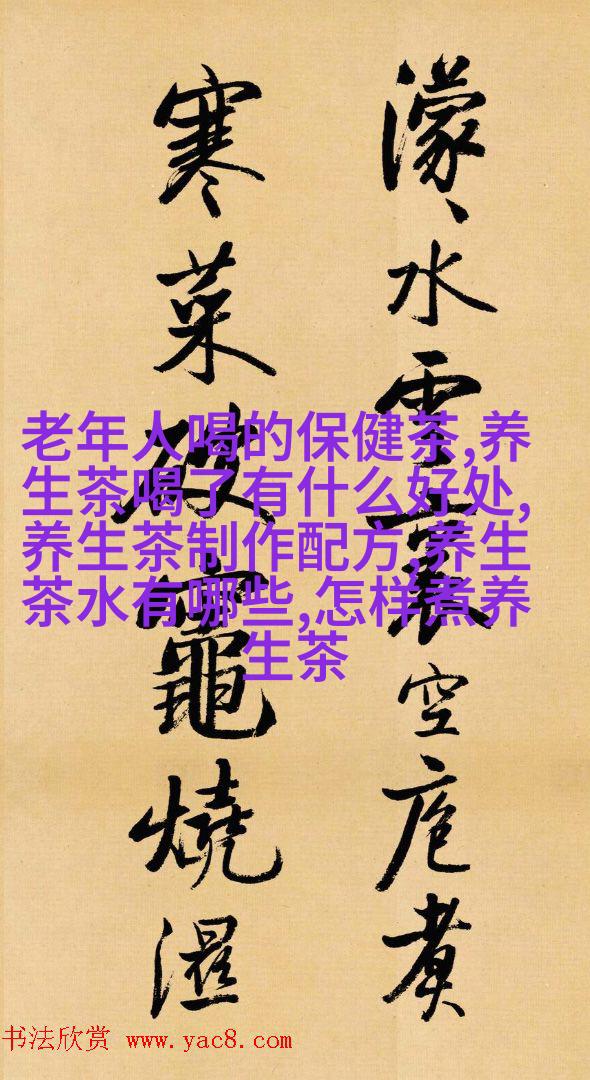 濛々水雲裏空庖煮
寒菜破竈燒濕
老年人喝的保健茶,养
生茶喝了有什么好处,
养生茶制作配方,养生
茶水有哪些,怎样煮养
生茶
书法欣赏 www.yac8.com